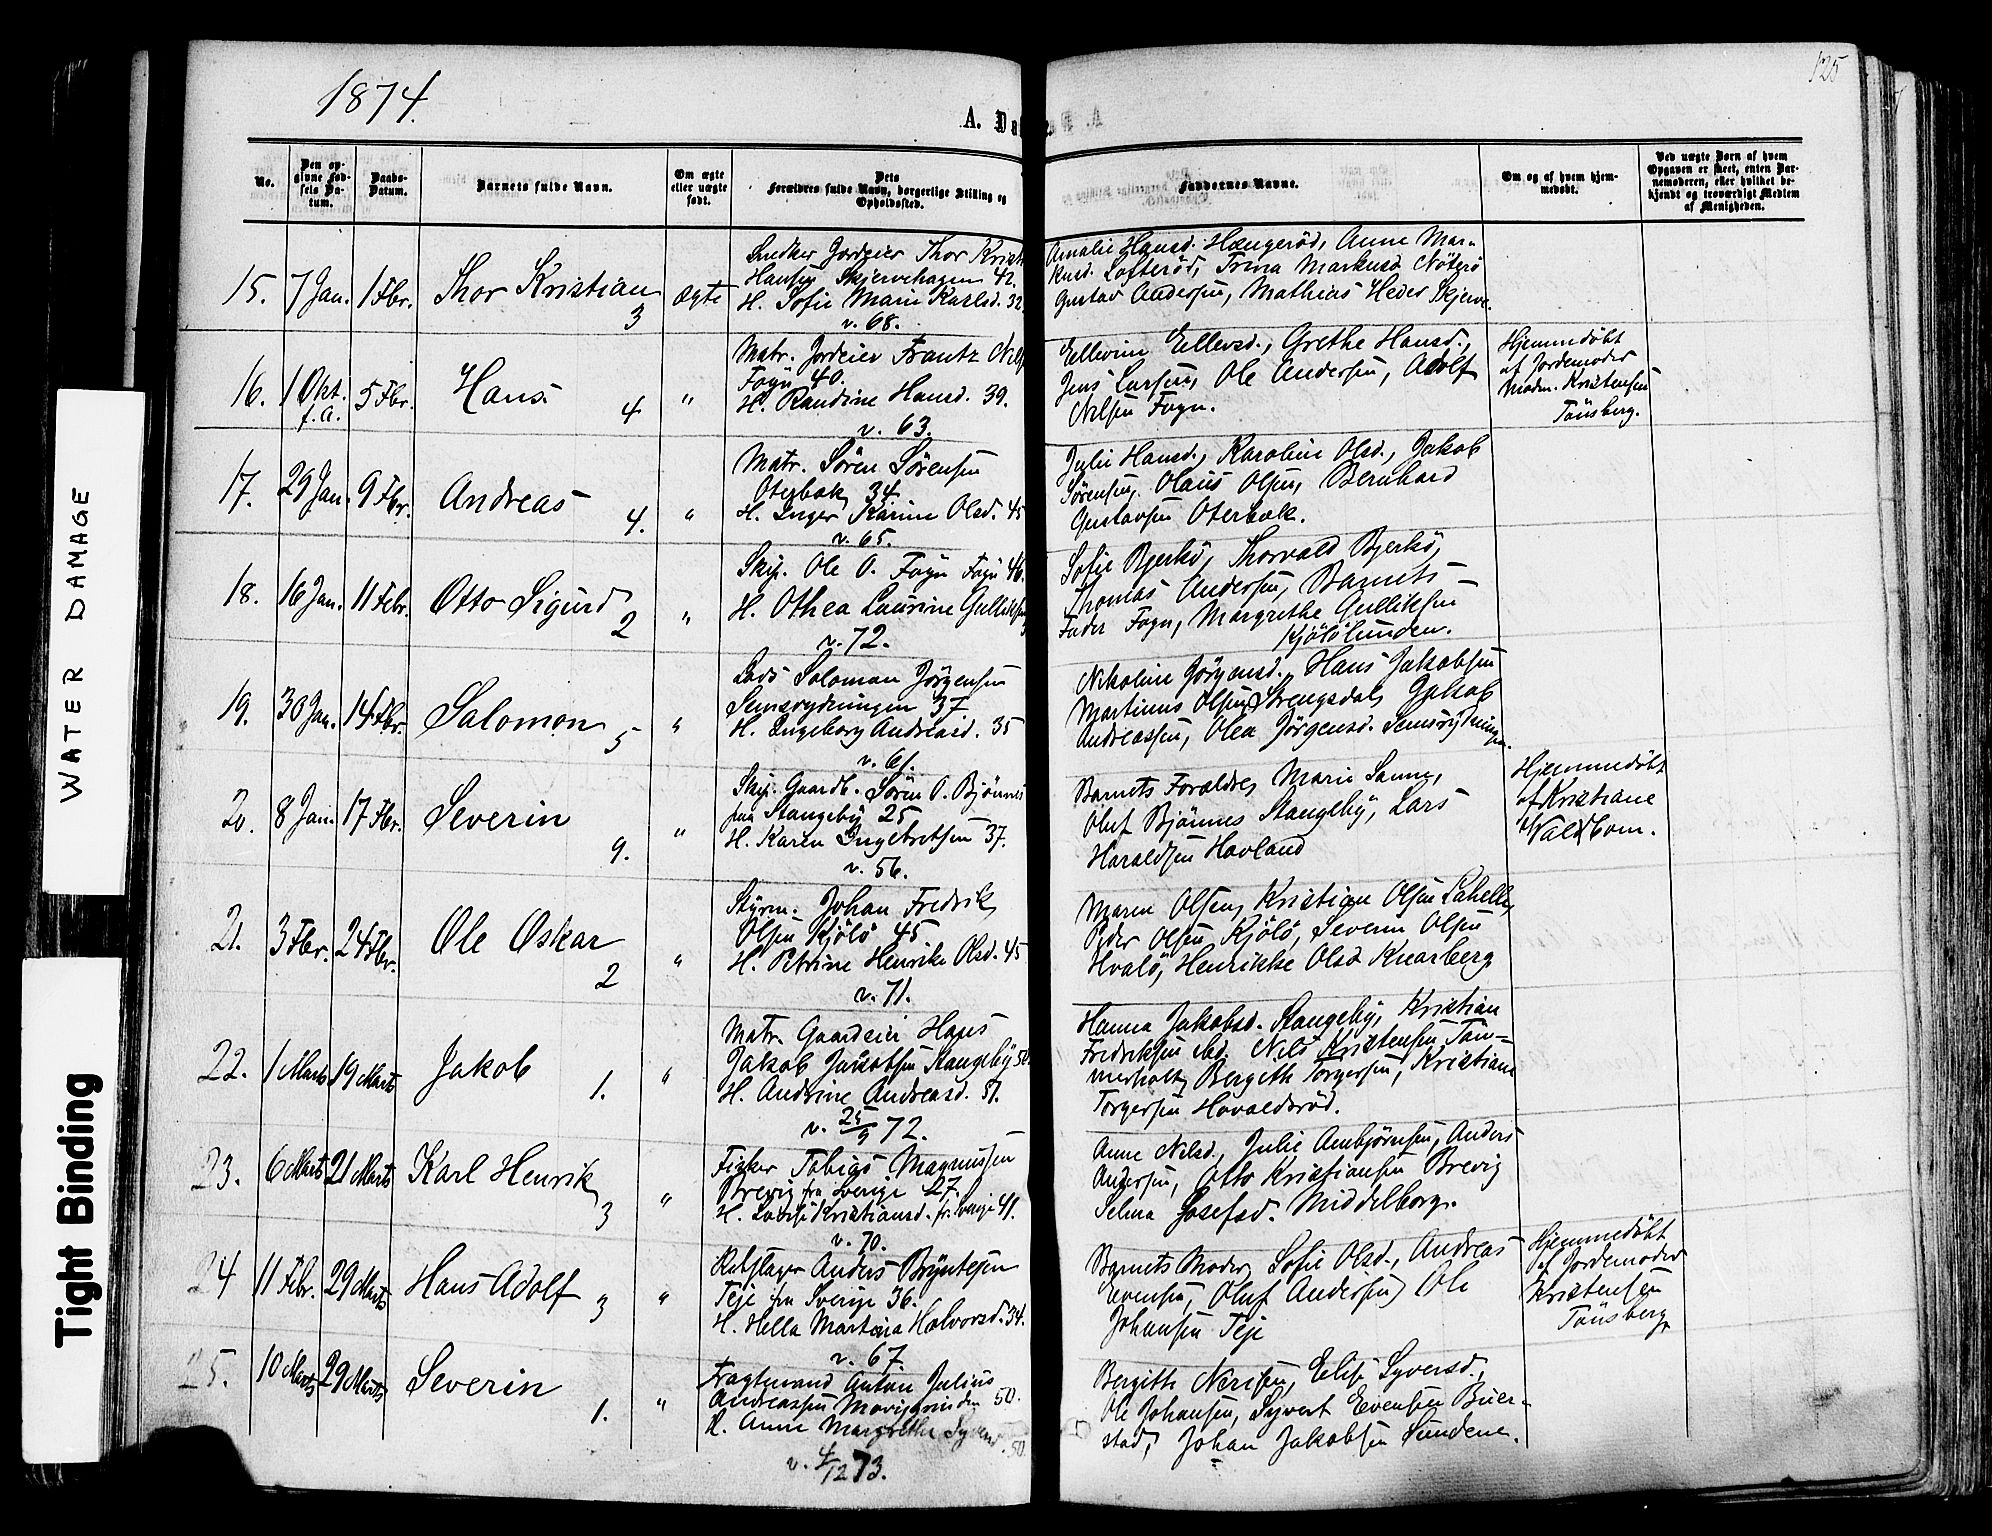 1874.
125
A. Da
No.
Den opgivne Fødsels Datum.
Daabs-Datum.
Barnets fulde Navn.
Om ægte eller uægte født.
Dets Forældres fulde Navn, borgerlige Stilling og Opholdssted.
Faddernes Navne.
Om og af hvem hjemmedøbt.
Ved uægte Børn af hvem Opgaven er skeet, enten Barnemoderen, eller hvilket bekjendt og troværdigt Medlem af Menigheden.
15. 7 Jan. 1 Fbr. Thor Kristian 3 ægte
Snedker Jordeier Thor Krist
Hansen Skjervehagen 42.
H. Sofie Marie Karlsd. 32
v. 68.
Amalie Hansd. Hængerød, Anne Mar-
kusd. Lofterød, Trina Markusd Nøterø
Gustav Andersen, Mathias Heder Skjerve.
16. 1 Okt. f.A. 5 Fbr. Hans 4 "
Matr. Jordeier Frantz Nils
Fogn 40.
H. Randine Hansd. 39.
v. 63.
Ellevine Ellevsd., Grethe Hansd.,
Jens Larsen, Ole Andersen, Adolf
Nilsen Fogn.
Hjemmedøbt
af Jordemoder
Madm. Kristensen
Tønsberg.
17. 29 Jan. 9 Fbr. Andreas 4. "
Matr. Søren Sørensen
Oterbæk 34
H. Inger Karine Olsd. 45
v. 65.
Julie Hansd., Karoline Olsd., Jakob
Sørensen, Olaus Olsen, Bernhard
Gustavsen Oterbæk.
18. 16 Jan. 11 Febr. Otto Sigurd 2 "
Skip. Ole O. Fogn Fogn 46.
H. Othea Laurine Gulliksen
v. 72.
Sofie Bjerkø, Thorvald Bjerkø,
Thomas Andersen, Barnets
Fader Fogn, Margrethe Gulliksen
Kjølølunden.
19. 30 Jan. 14 Fbr. Salomon 5 "
Lods Salomon Jørgensen
Semsrydningen 37
H. Ingeborg Andreasd. 35
v. 61.
Nikoline Jørgensd., Hans Jakobsen
Martinus Olsen Strengsdal, Jakob
Andreassen, Olea Jørgensd. Semsrydningen.
20. 8 Jan. 17 Fbr. Severin 9. "
Skip. Gaardb. Søren O. Bjønnes
paa Stangeby 25
H. Karen Ingebretsen 37.
v. 56.
Barnets Forældre, Marie Sanne,
Oluf Bjønnes Stangeby, Lars
Haraldsen Havland
Hjemmedøbt
af Kristiane
Waldbom.
21. 3 Fbr. 24 Fbr. Ole Oskar 2 "
Styrm. Johan Fredrik
Olsen Kjølø 45
H. Petrine Henrike Olsd. 45
v. 71.
Maren Olsen, Kristian Olsen
Peder Olsen Kjølø, Severin Olsen
Hvalø, Henrikke Olsd Knarberg
22. 1 Marts 19 Marts Jakob 1. "
Matr. Gaardeier Hans
Jakob Jakobsen Stangeby
H. Andrine Andreasd. 51.
v. 25/9 72.
Hanna Jakobsd. Stangeby, Kristian
Fredriksen ibd. Nils Kristensen Tøm-
merholt, Bergith Torgersen, Kristiane
Torgersen Hovaldsrød.
23. 6 Marts 21 Marts Karl Henrik 3 "
Fisker Tobias Magnussen
Brevig fra Sverige 27.
H. Lovise Kristiansd. fr. Sverige 41.
v. 70.
Anne Nilsd., Julie Ambjørnsen, Anders
Andersen, Otto Kristiansen Brevig
Selma Josefsd. Middelborg.
24 11 Febr. 29 Marts Hans Adolf 3 "
Rebslager Anders Bryntesen
Teje fra Sverige 36.
H. Hella Martina Halvorsd. 34.
v. 67.
Barnets Moder, Sofie Olsd., Andreas
Evensen, Oluf Andersen, Ole
Johansen Teje
Hjemmedøbt
af Jordemoder
Kristensen
Tønsberg
25. 10 Marts 29 Marts Severin 1. "
Fragtmand Anton Julius
Andreassen 50.
H. Anne Margrethe 50.
v. 4/12 73.
Bergitte Nersen, Elise Syversd.,
Ole Johansen, Syvert Evensen Buer-
stad, Johan Jakobsen Sundene.
WATER DAMAGE
Tight Binding